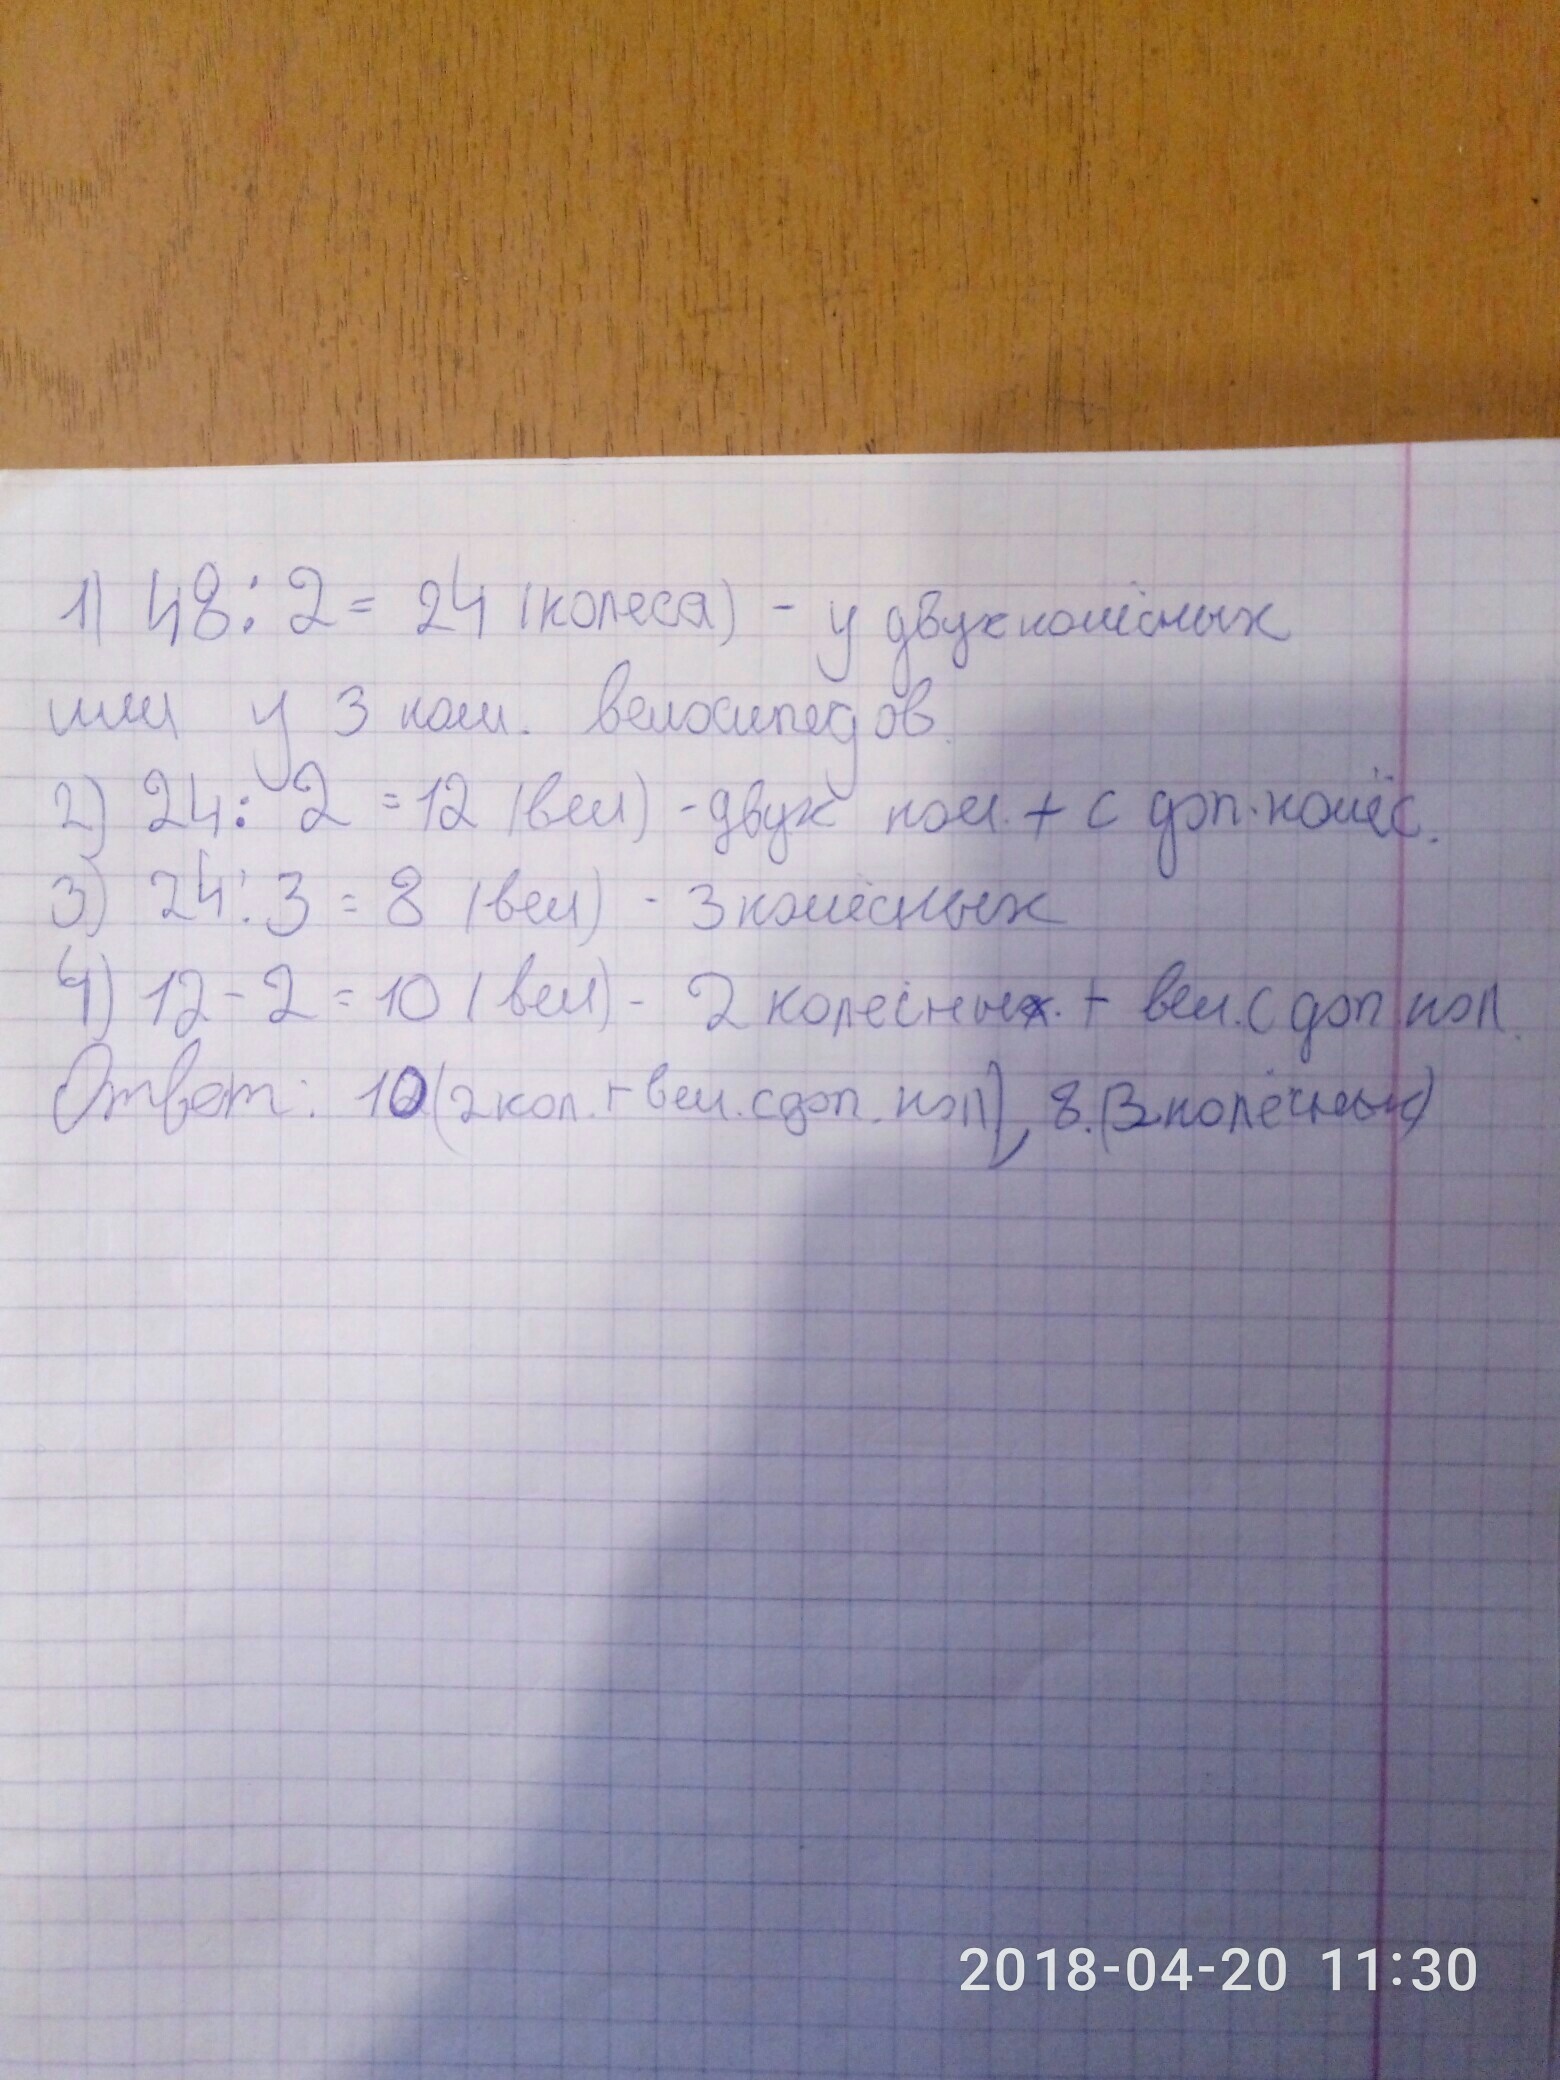 1) 48 : 2 = 24 (колеса) - у двухколёсных
или у 3 кол. велосипедов.
2) 24 : 2 = 12 (вел) - двух кол. + с доп. колёс.
3) 24 : 3 = 8 (вел) - 3 колёсных
4) 12 - 2 = 10 (вел) - 2 колёсных. + вел. с доп кол.
Ответ: 10 (2 кол. + вел. с доп. кол), 8. (3 колёсных)
2018-04-20 11:30